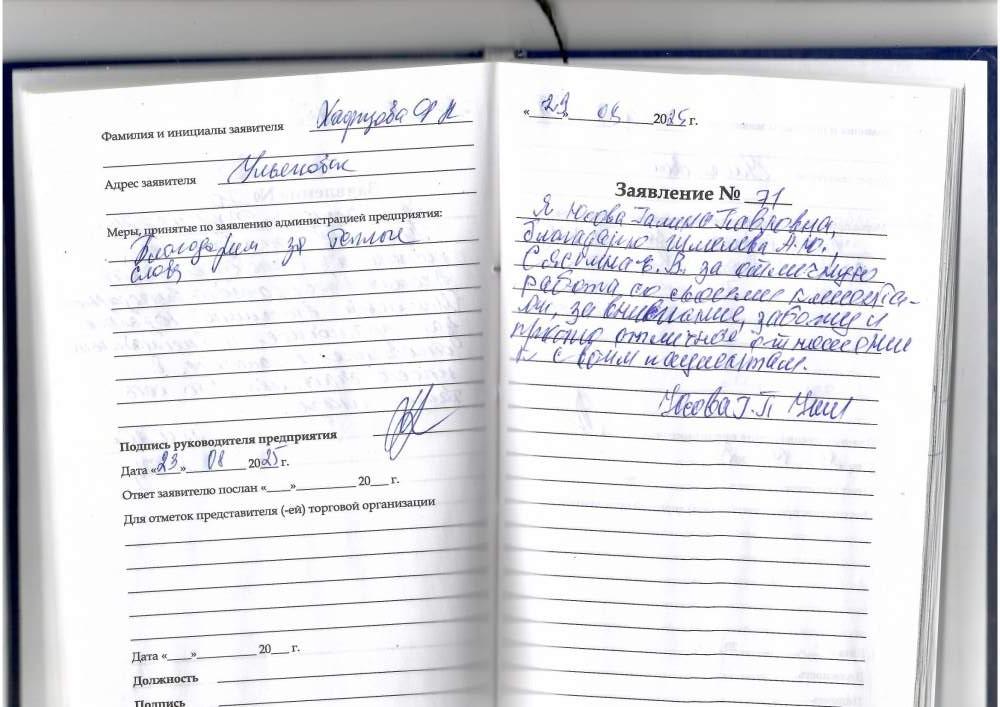 Фамилия и инициалы заявителя Хафизова Ф Н
Адрес заявителя Ульяновск
Меры, принятые по заявлению администрацией предприятия:
Благодарим за теплые
слова
Подпись руководителя предприятия
Дата «23» 08 2025 г.
Ответ заявителю послан «___»__________ 20___ г.
Для отметок представителя (-ей) торговой организации
Дата «____»__________ 20___ г.
Должность
Подпись
« » 2025 г.
Заявление № 71
Я Юсова Галина Павловна,
благодарю А.Ю.,
Е. В. за отличную
работа со своеми клиента-
ми, за внимание, заботу и
отличное отношение
к своим пациентам.
Юсова Г.П